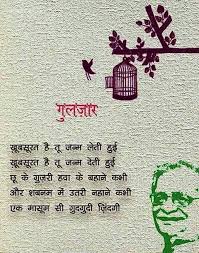 गुलज़ार
खूबसूरत है तू जन्म लेती हुई
खूबसूरत है तू जन्म देती हुई
छू के गुज़री हवा के बहाने कभी
और शबनम में उतरी नहाने कभी
एक मासूम सी गुदगुदी ज़िंदगी